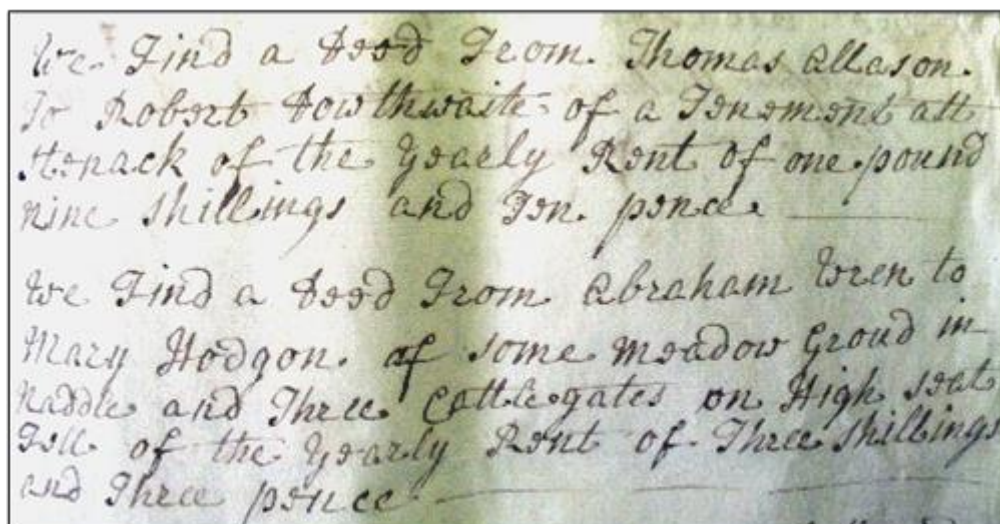 We Find a Deed From Thomas Allason.
To Robert Dowthwaite of a Tenement att
Stenack of the Yearly Rent of one pound
nine shillings and Ten pence
We Find a Deed From Abraham Wren to
Mary Hodgon. of some meadow Groud in
Naddle and Three Cattlegates on High seat
Fell of the Yearly Rent of Three shillings
and Three pence